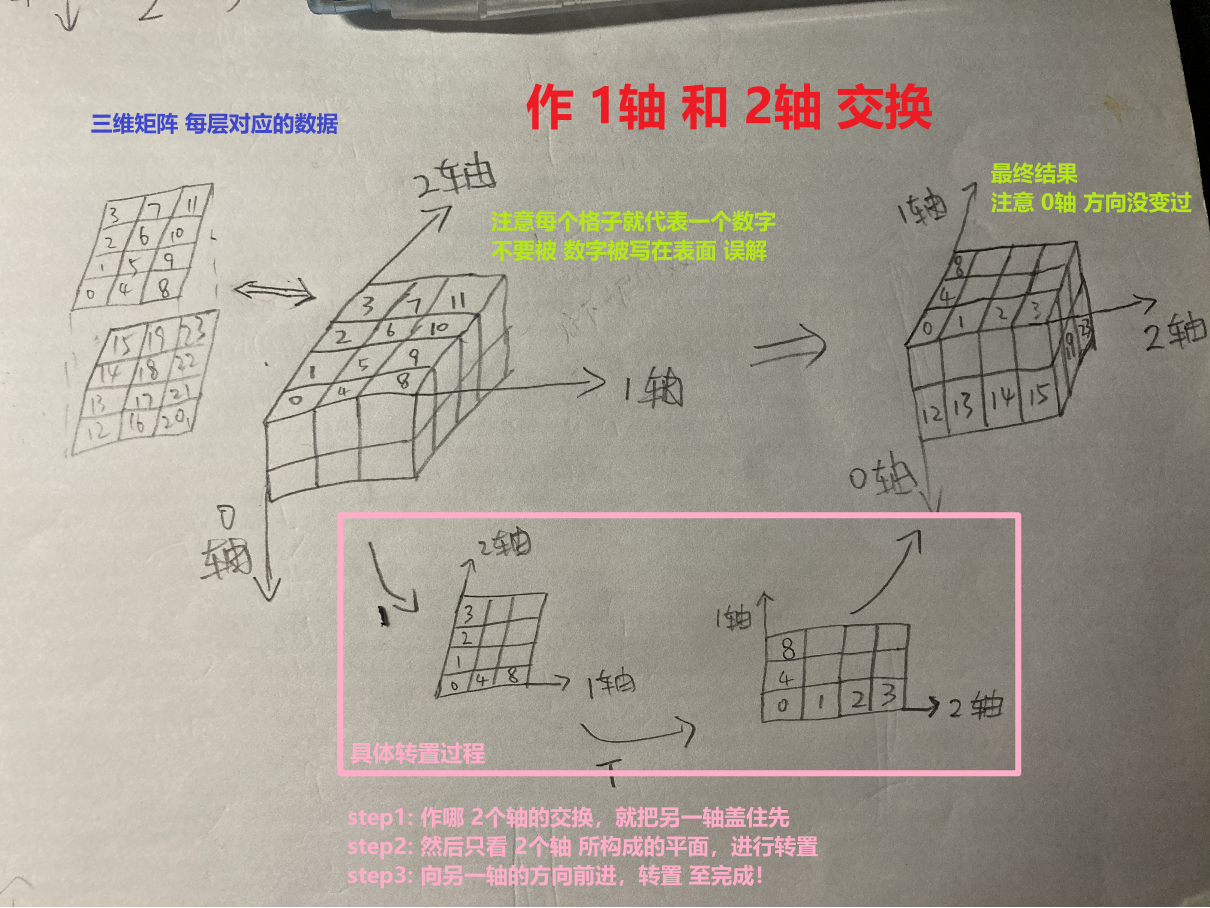 作 1轴 和 2轴 交换
三维矩阵 每层对应的数据
3 7 11
2 6 10
1 5 9
0 4 8
15 19 23
14 18 22
13 17 21
12 16 20
2轴
注意每个格子就代表一个数字
不要被 数字被写在表面 误解
3 7 11
2 6 10
1 5 9
0 4 8
1轴
0
轴
最终结果
注意 0轴 方向没变过
1轴
8
4
0 1 2 3
19 23
12 13 14 15
2轴
0轴
2轴
3
2
1
0 4 8
1轴
T
1轴
8
4
0 1 2 3
2轴
具体转置过程
step1: 作哪 2个轴的交换，就把另一轴盖住先
step2: 然后只看 2个轴 所构成的平面，进行转置
step3: 向另一轴的方向前进，转置 至完成！